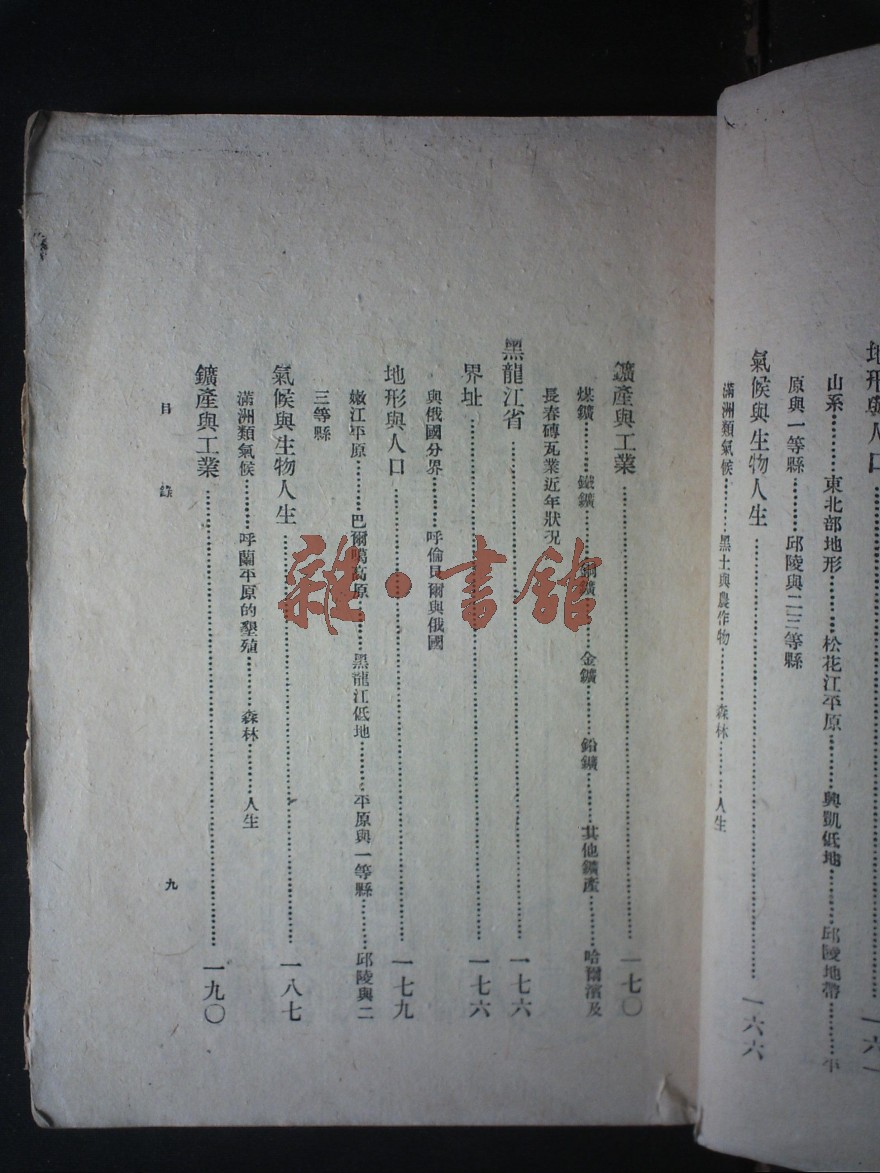 地形與人口………一六一
山系………東北部地形………松花江平原………興凱低地………邱陵地帶………平
原與一等縣………邱陵與二三等縣
氣候與生物人生………一六六
滿洲類氣候………黑土與農作物………森林………人生
鑛產與工業………一七〇
煤鑛………鐵鑛………銅鑛………金鑛………鉛鑛………其他鑛產………哈爾濱及
長春磚瓦業近年狀况
黑龍江省………一七六
界址………一七六
與俄國分界………呼倫貝爾與俄國
地形與人口………一七九
嫩江平原………巴爾噶高原………黑龍江低地………平原與一等縣………邱陵與二
三等縣
氣候與生物人生………一八七
滿洲類氣候………呼蘭平原的墾殖………森林………人生
鑛產與工業………一九〇
目錄
九
雜·書館